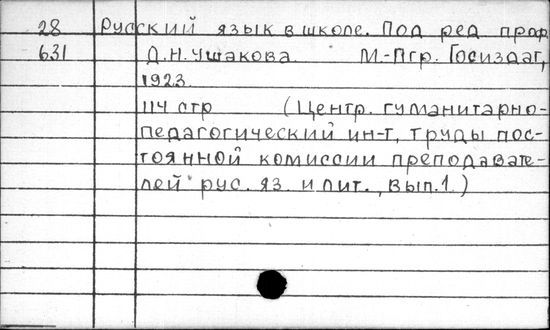 28 Русский язык в школе. Под ред проф
631 Д.Н. Ушакова М.-Пгр. Госиздат,
1923.
114 стр (Центр. гуманитарно-
педагогический ин-т, труды пос-
тоянной комиссии преподавате-
лей рус. яз. и лит., вып.1)